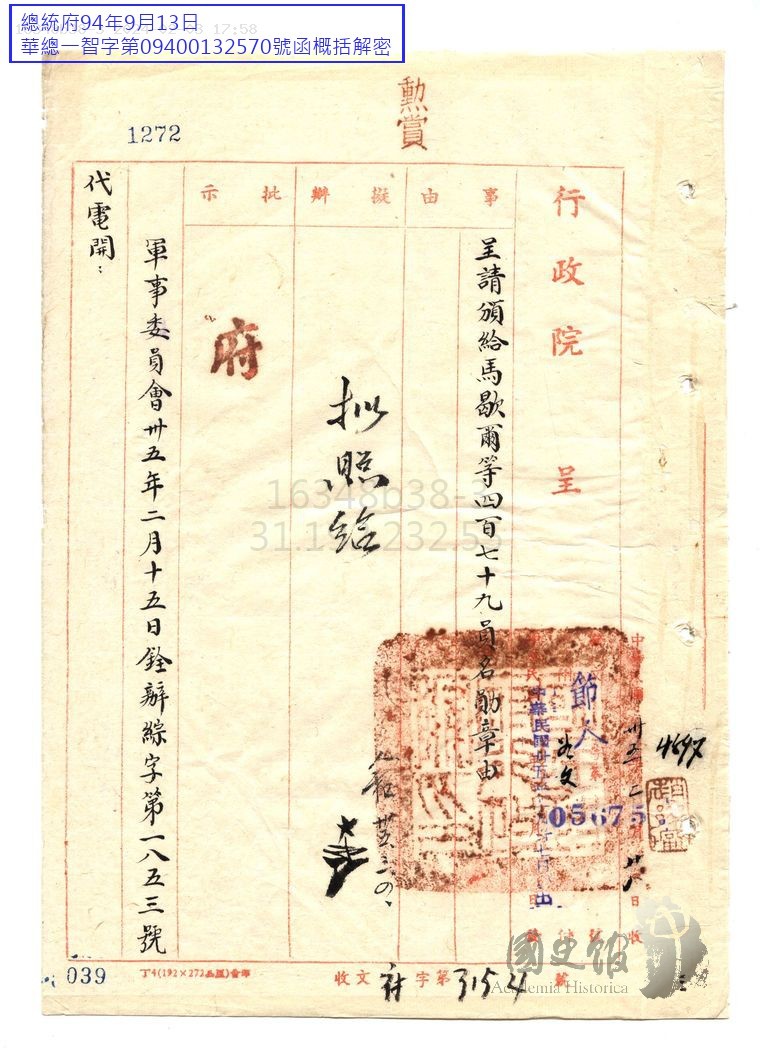 總統府94年9月13日
華總一智字第09400132570號函概括解密
勳賞
1272
行政院 呈
事由
擬辦
批示
呈請頒給馬歇爾等四百七十九員名勛章由
擬照給
府
軍事委員會卅五年二月十五日銓辦綜字第一八五三號
代電開：
節人
4697
05675
039
丁4(192×272
收文府字第3154號
16348b38-3
31.1
232.5
國史館
Academia Historica